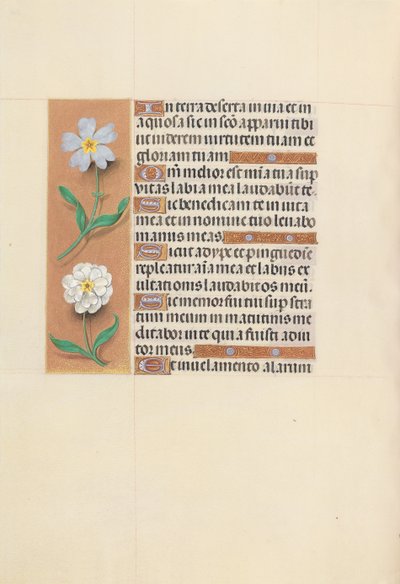 In terra deserta in via et in
aquosa sic in sco apparui tibi
ut viderem virtutem tuam et
gloriam tuam
Qm melior est mia tua sup
vitas labia mea laudabut te.
Sic benedicam te in vita
mea et in nomine tuo levabo
manus meas.
Sicut adype et pinguedie
repleatur aia mea et labiis ex
ultationis laudabit os meu.
Sic memor fui tui sup stra
tum meum in matutinis me
ditabor in te quia fuisti adiu
tor meus.
Et in velamento alarum